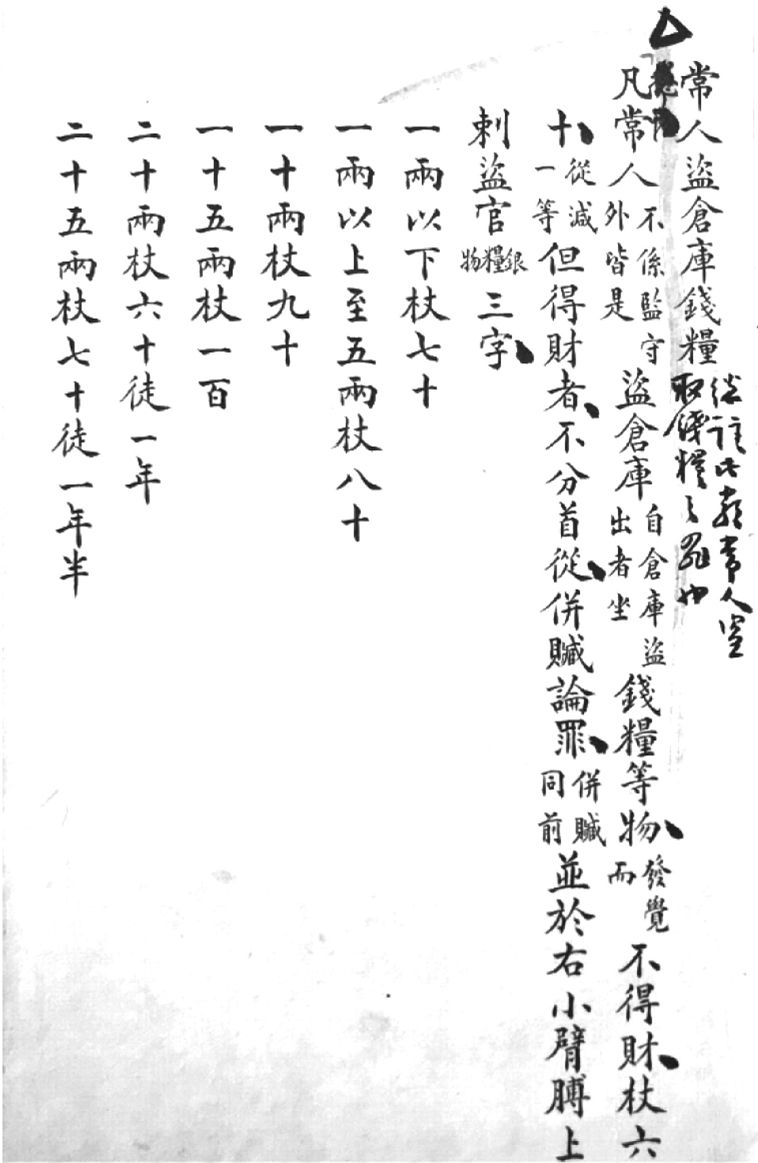 常人盜倉庫錢糧
常人盜
取錢糧之罪也
凡常人不係監守外皆是盜倉庫自倉庫盜出者坐錢糧等物發覺而不得財杖六
十從減一等但得財者不分首從併贓論罪併贓同前並於右小臂膊上
刺盜官銀糧物三字
一兩以下杖七十
一兩以上至五兩杖八十
一十兩杖九十
一十五兩杖一百
二十兩杖六十徒一年
二十五兩杖七十徒一年半